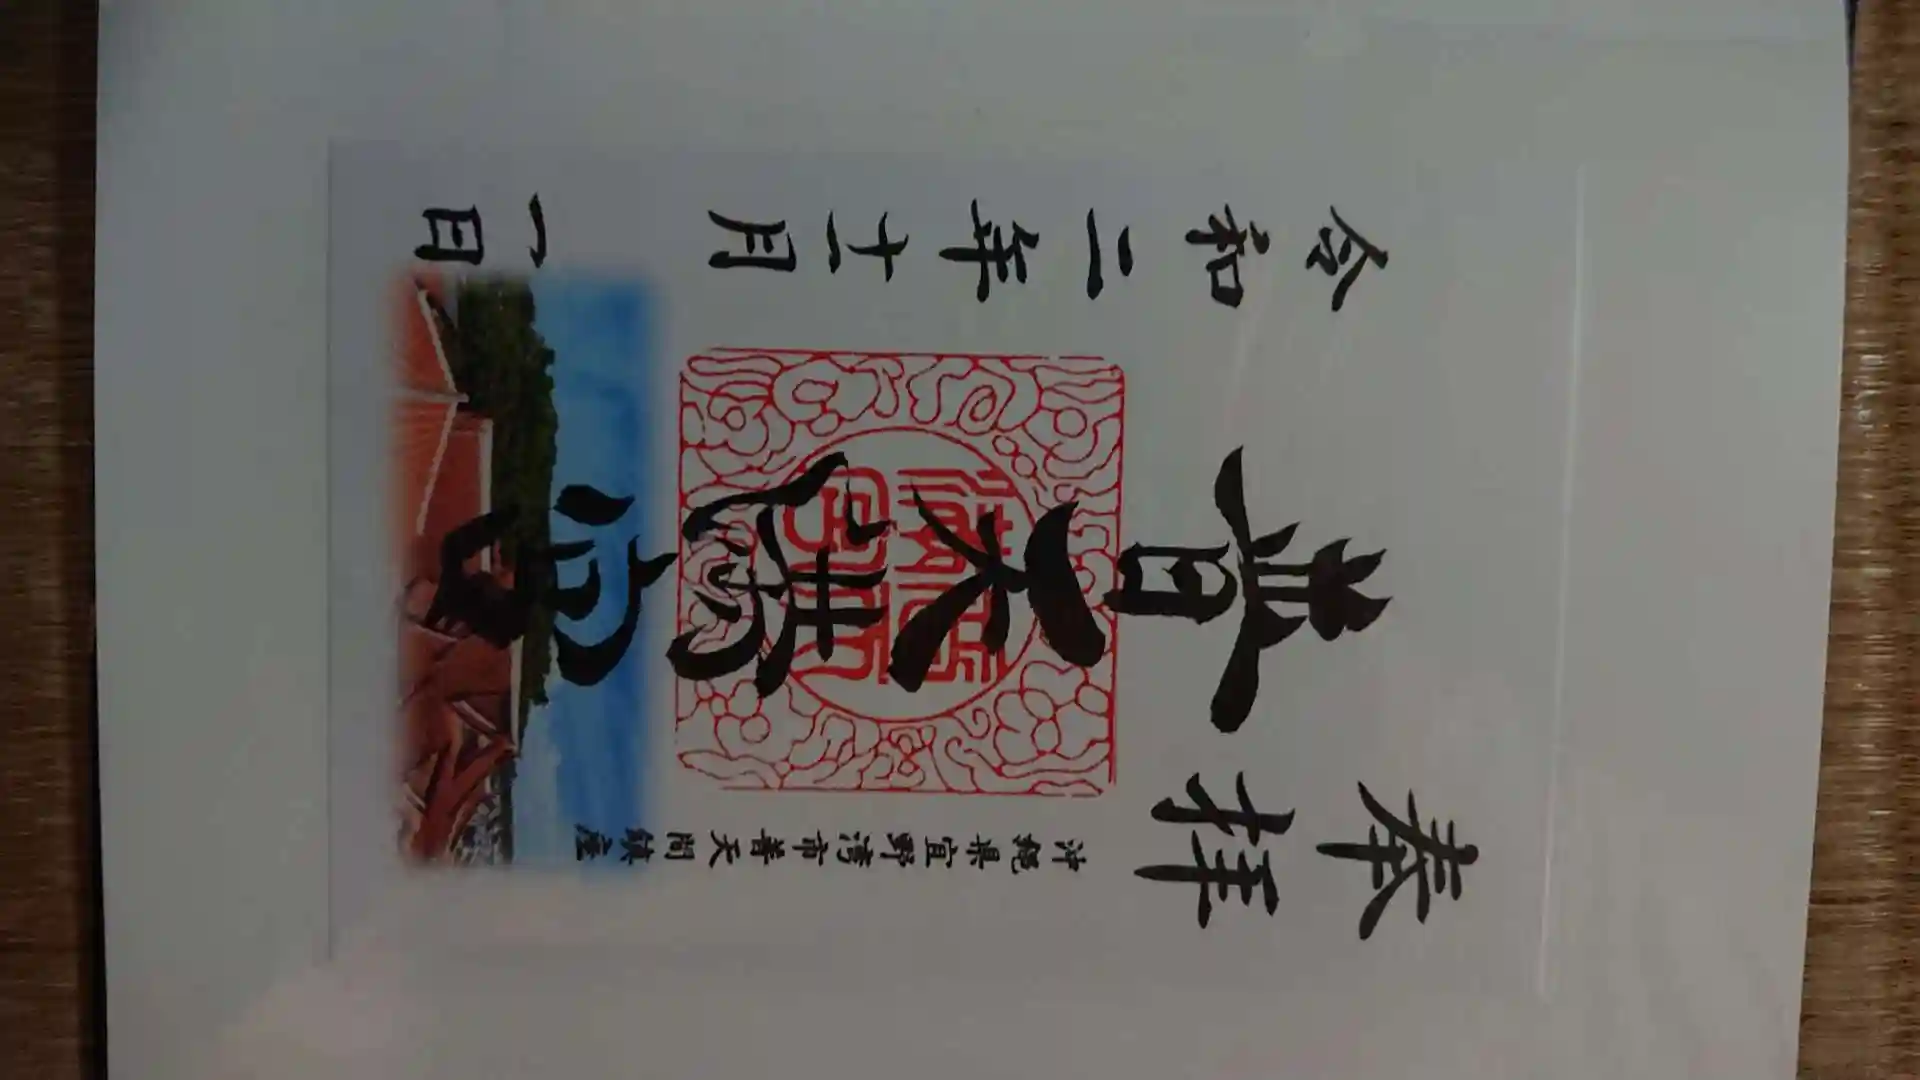 奉拝
沖縄県宜野湾市普天間鎮座
普天満宮
令和二年十一月一日